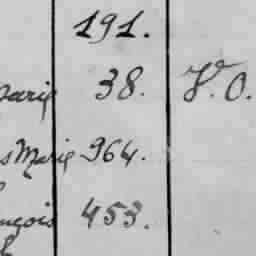 191.
Marie 38. V. O.
s Marie 964.
ançois 453.